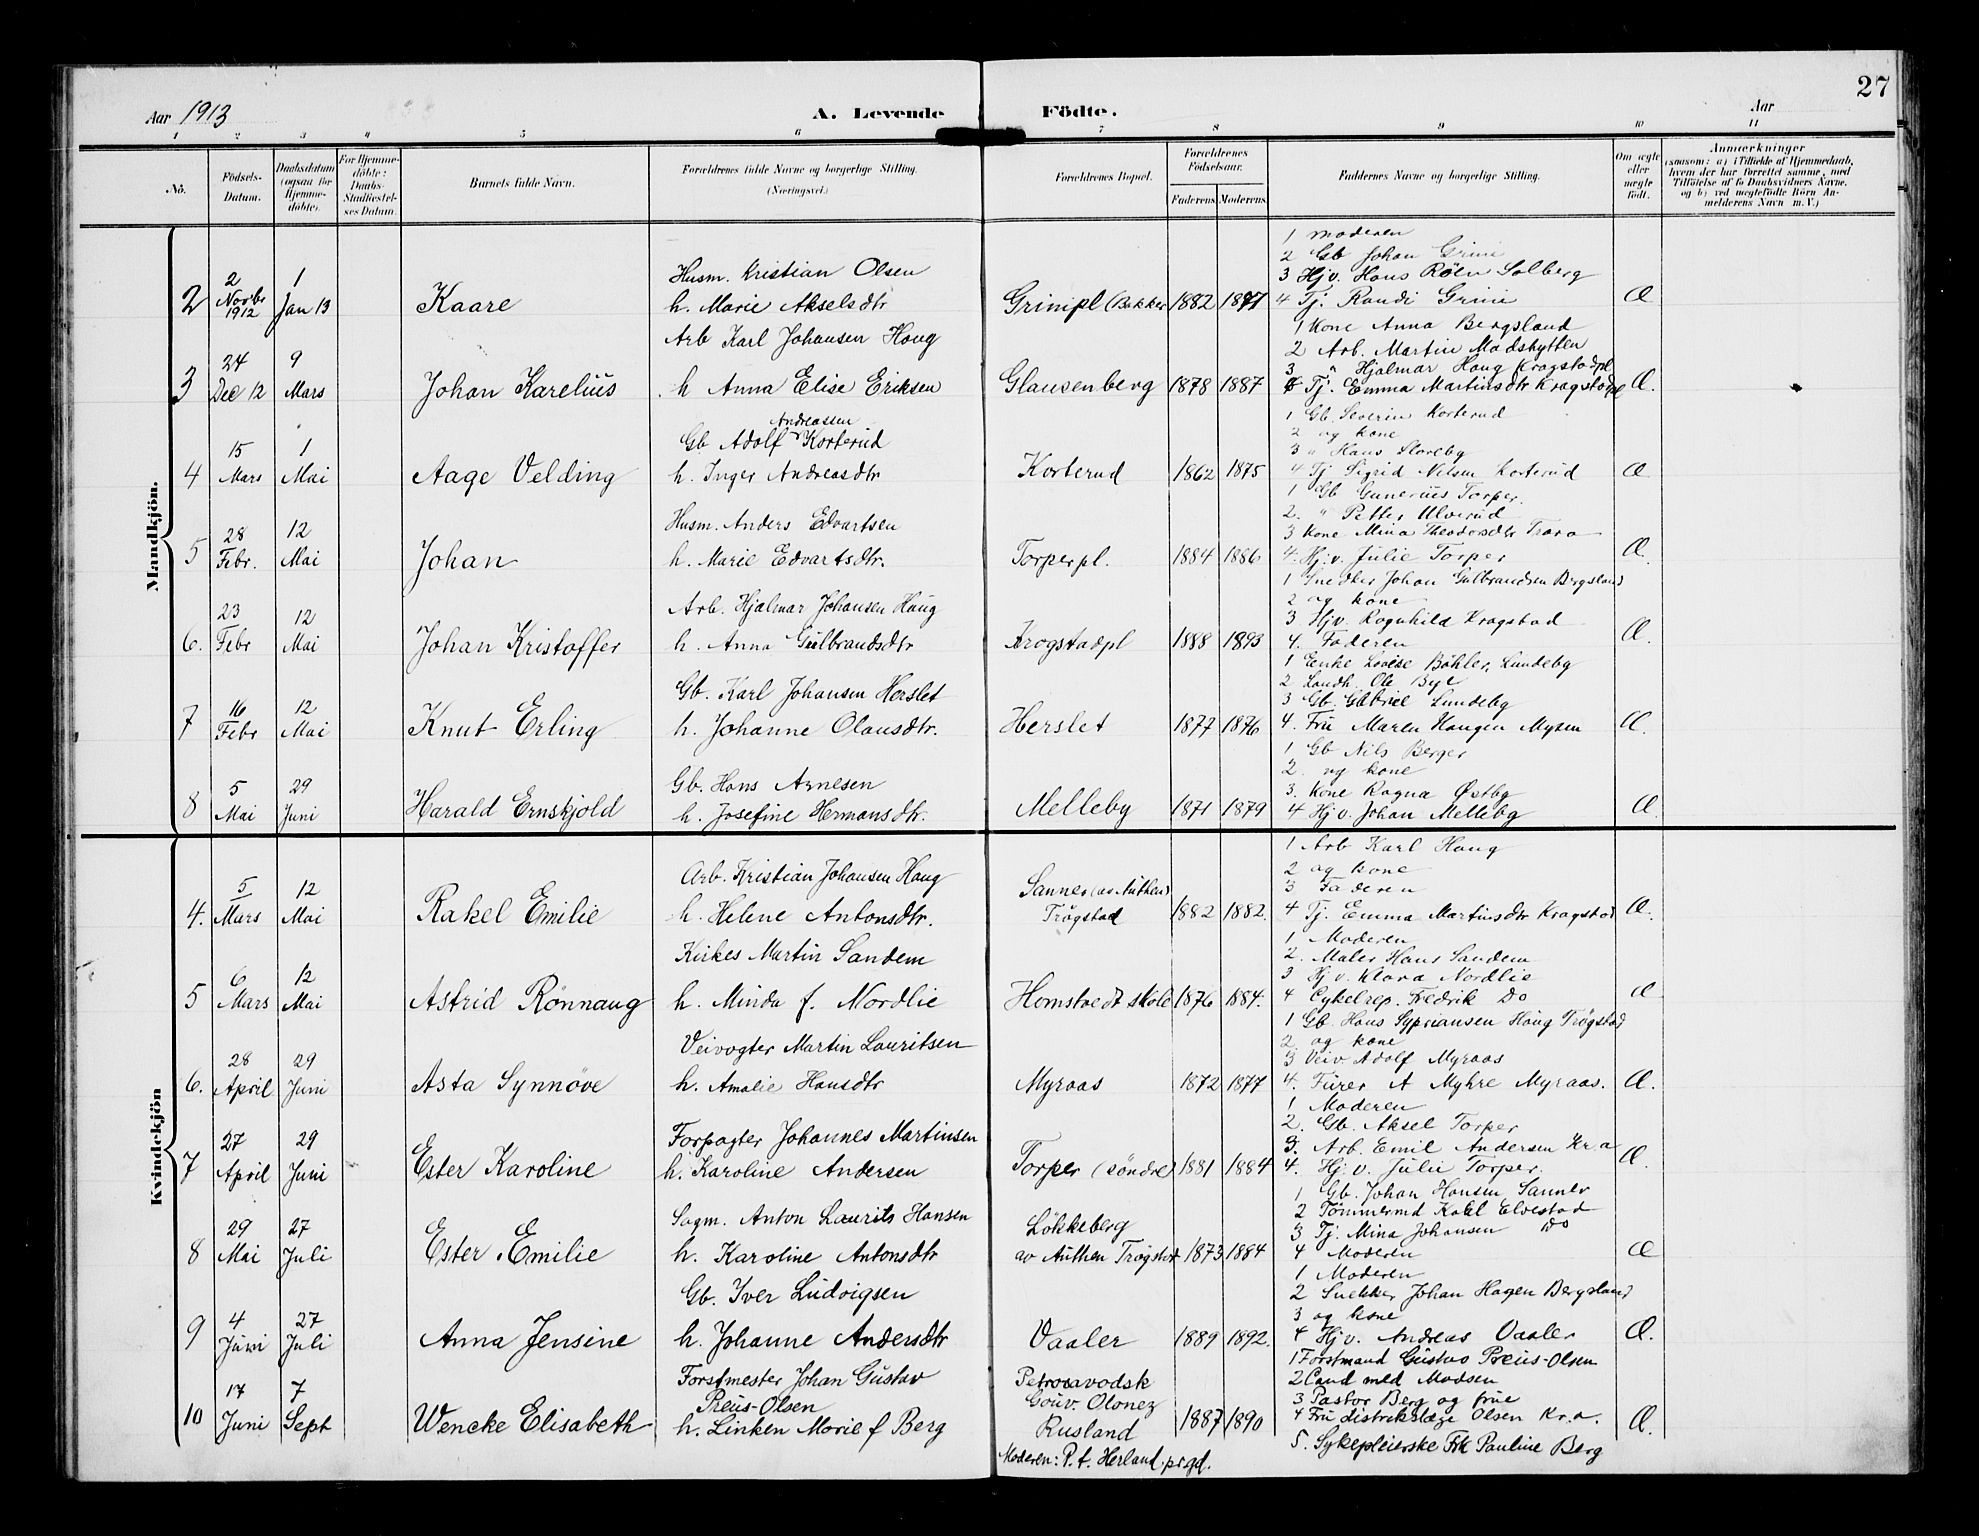 27
Aar 1913
A. Levende Födte.
Aar
1 2 3 4 5 6 7 8 9 10 11
No.
Födsels-Datum.
Daabsdatum (ogsaa for Hjemme-döbte).
For Hjemme-döbte: Daabs-Stadfæstel-ses Datum.
Barnets fulde Navn.
Forældrenes fulde Navne og borgerlige Stilling. (Næringsvei.)
Forældrenes Bopæl.
Forældrenes Födselsaar.
Faderens. Moderens.
Faddernes Navne og borgerlige Stilling.
Om ægte eller uægte født.
Anmærkninger
(saasom: a) i Tilfælde af Hjemmedaab, hvem der har forrettet samme, med Tilföielse af to Daabsvidners Navne, og b) ved uægtefödte Börn An-melderens Navn m. V.)
Mandkjön.
2
2 Novbr 1912
1 Jan 13
Kaare
Husm. Kristian Olsen
h. Marie Akselsdtr
Grinipl (Bakker
1882 1887
1 Moderen
2 Gb Johan Grini
3 Hjv. Hans Röen Solberg
4 Tj. Randi Grini
Æ
3
24 Dec 12
9 Mars
Johan Karelius
Arb Karl Johansen Haug
h Anna Elise Eriksen
Glausenberg
1878 1887
1 Kone Anna Bergsland
2 Arb. Martin Madshytten
3 " Hjalmar Haug Kragstadpl
4 Tj. Emma Martinsdtr Kragstadpl
Æ.
4
15 Mars
1 Mai
Aage Velding
Gb Adolf Andreassen Korterud
h. Inger Andreasdtr
Korterud
1862 1875
1 Gb. Severin Korterud
2 og kone
3 " Hans Skoveby
4 Tj Sigrid Nilsen Korterud
Æ
5
28 Febr.
12 Mai
Johan
Husm. Anders Edvartsen
h. Marie Edvartsdtr.
Torperpl.
1884 1886
1 Gb Gunerius Torper.
2. " Petter Ulverud
3 Kone Mina Theodorsdtr Trara
4. Hj.v. Julie Torper
Æ.
6.
23 Febr
12 Mai
Johan Kristoffer
Arb. Hjalmar Johansen Haug
h. Anna Gulbrandsdtr
Krogstadpl
1888 1893
1 Snedker Johan Gulbrandsen Bergsland
2 og kone
3 Hjv Ragnhild Kragstad
4. Faderen
Æ.
7
16 Febr
12 Mai
Knut Erling
Gb. Karl Johansen Herslet
h. Johanne Olausdtr.
Herslet
1877 1876
1 Enke Lovise Böhler, Lundeby
2 Landh. Ole Bye
3 Gb. Gabriel Lundeby
4. Fru Maren Haugen Mysen
Æ.
8
5 Mai
29 Juni
Harald Ernskjold
Gb. Hans Arnesen
h. Josefine Hermansdtr.
Melleby
1871 1879
1 Gb Nils Berger
2. og kone
3. Kone Ragna Østby
4 Hjv. Johan Melleby
Æ.
Kvindekjön
4.
5 Mars
12 Mai
Rakel Emilie
Arb. Kristian Johansen Haug
h. Helene Antonsdtr.
Sanner (av Authen)
Trøgstad
1882 1882.
1 Arb Karl Haug
2 og kone
3 Faderen
4 Tj. Emma Martinsdtr Kragstad
Æ.
5
6 Mars
12 Mai
Astrid Rönnaug
Kirkes Martin Sandem
h. Minda f. Nordlie
Homstvedt skole
1876 1884.
1 Moderen
2. Maler Hans Sandem
3 Hj v. Klara Nordlie
4 Cykelrep. Fredrik Do
Æ
6.
28 April
29 Juni
Asta Synnöve
Veivogter Martin Lauritsen
h. Amalie Hansdtr
Myraas
1872 1877
1 Gb. Hans Sypriansen Haug Trögstad
2. og kone
3 Veiv Adolf Myraas
4. Furer A Myhre Myraas.
Æ.
7
27 April
29 Juni
Ester Karoline
Forpagter Johannes Martinsen
h. Karoline Andersen
Torper (söndre)
1881 1884
1 Moderen
2. Gb. Aksel Torper
3. Arb. Emil Andersen Kr.a
4. Hj.v. Julie Torper.
Æ.
8
29 Mai
27 Juli
Ester Emilie
Sagm. Anton Laurits Hansen
h. Karoline Antonsdtr
Lökkeberg
av Authen Trøgstad
1873 1884
1 Gb. Johan Hansen Sanner
2 Tömmermd Karl Elvestad
3 Tj. Mina Johansen Do
4 Moderen
Æ
9
4 Juni
27 Juli
Anna Jensine
Gb. Iver Ludvigsen
h. Johanne Andersdtr
Vaaler
1889 1892.
1 Moderen
2 Snekker Johan Hagen Bergsland
3 og kone
4 Hjv. Andreas Vaaler
Æ.
10
17 Juni
7 Sept
Wencke Elisabeth
Forstmester Johan Gustav
Preus-Olsen
h. Linken Marie f Berg
Petrosavodsk
Gouv. Olonez
Rusland
Moderen: P. t. Herland prgd.
1887 1890
1 Forstmand Gustav Preus-Olsen
2 Cand med Madsen
3 Pastor Berg og frue
4 Fru distriktslæge Olsen Kr.a.
5. Sykepleierske Frk Pauline Berg
Æ.